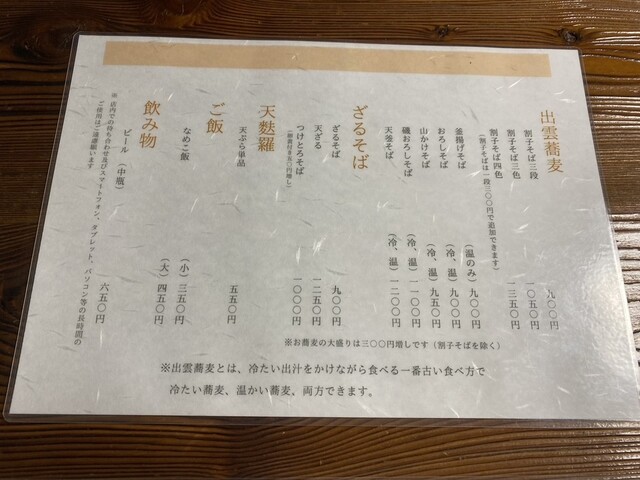 出雲蕎麦
割子そば三段 九〇〇円
割子そば三色 一〇五〇円
割子そば四色 一三五〇円
(割子そばは一段三〇〇円で追加できます)
釜揚げそば (温のみ) 九〇〇円
おろしそば (冷、温) 九〇〇円
山かけそば (冷、温) 九五〇円
磯おろしそば (冷、温) 一一〇〇円
天釜そば (冷、温) 一二〇〇円
ざるそば
ざるそば 九〇〇円
天ざる 一二五〇円
つけとろそば 一〇〇〇円
天麩羅
天ぷら単品 五五〇円
ご飯
なめこ飯 (小) 三五〇円
(大) 四五〇円
飲み物
ビール (中瓶) 六五〇円
※ 店内での待ち合わせ及びスマートフォン、タブレット、パソコン等の長時間の
ご使用はご遠慮願います
※お蕎麦の大盛りは三〇〇円増しです(割子そばを除く)
※出雲蕎麦とは、冷たい出汁をかけながら食べる一番古い食べ方で
冷たい蕎麦、温かい蕎麦、両方できます。